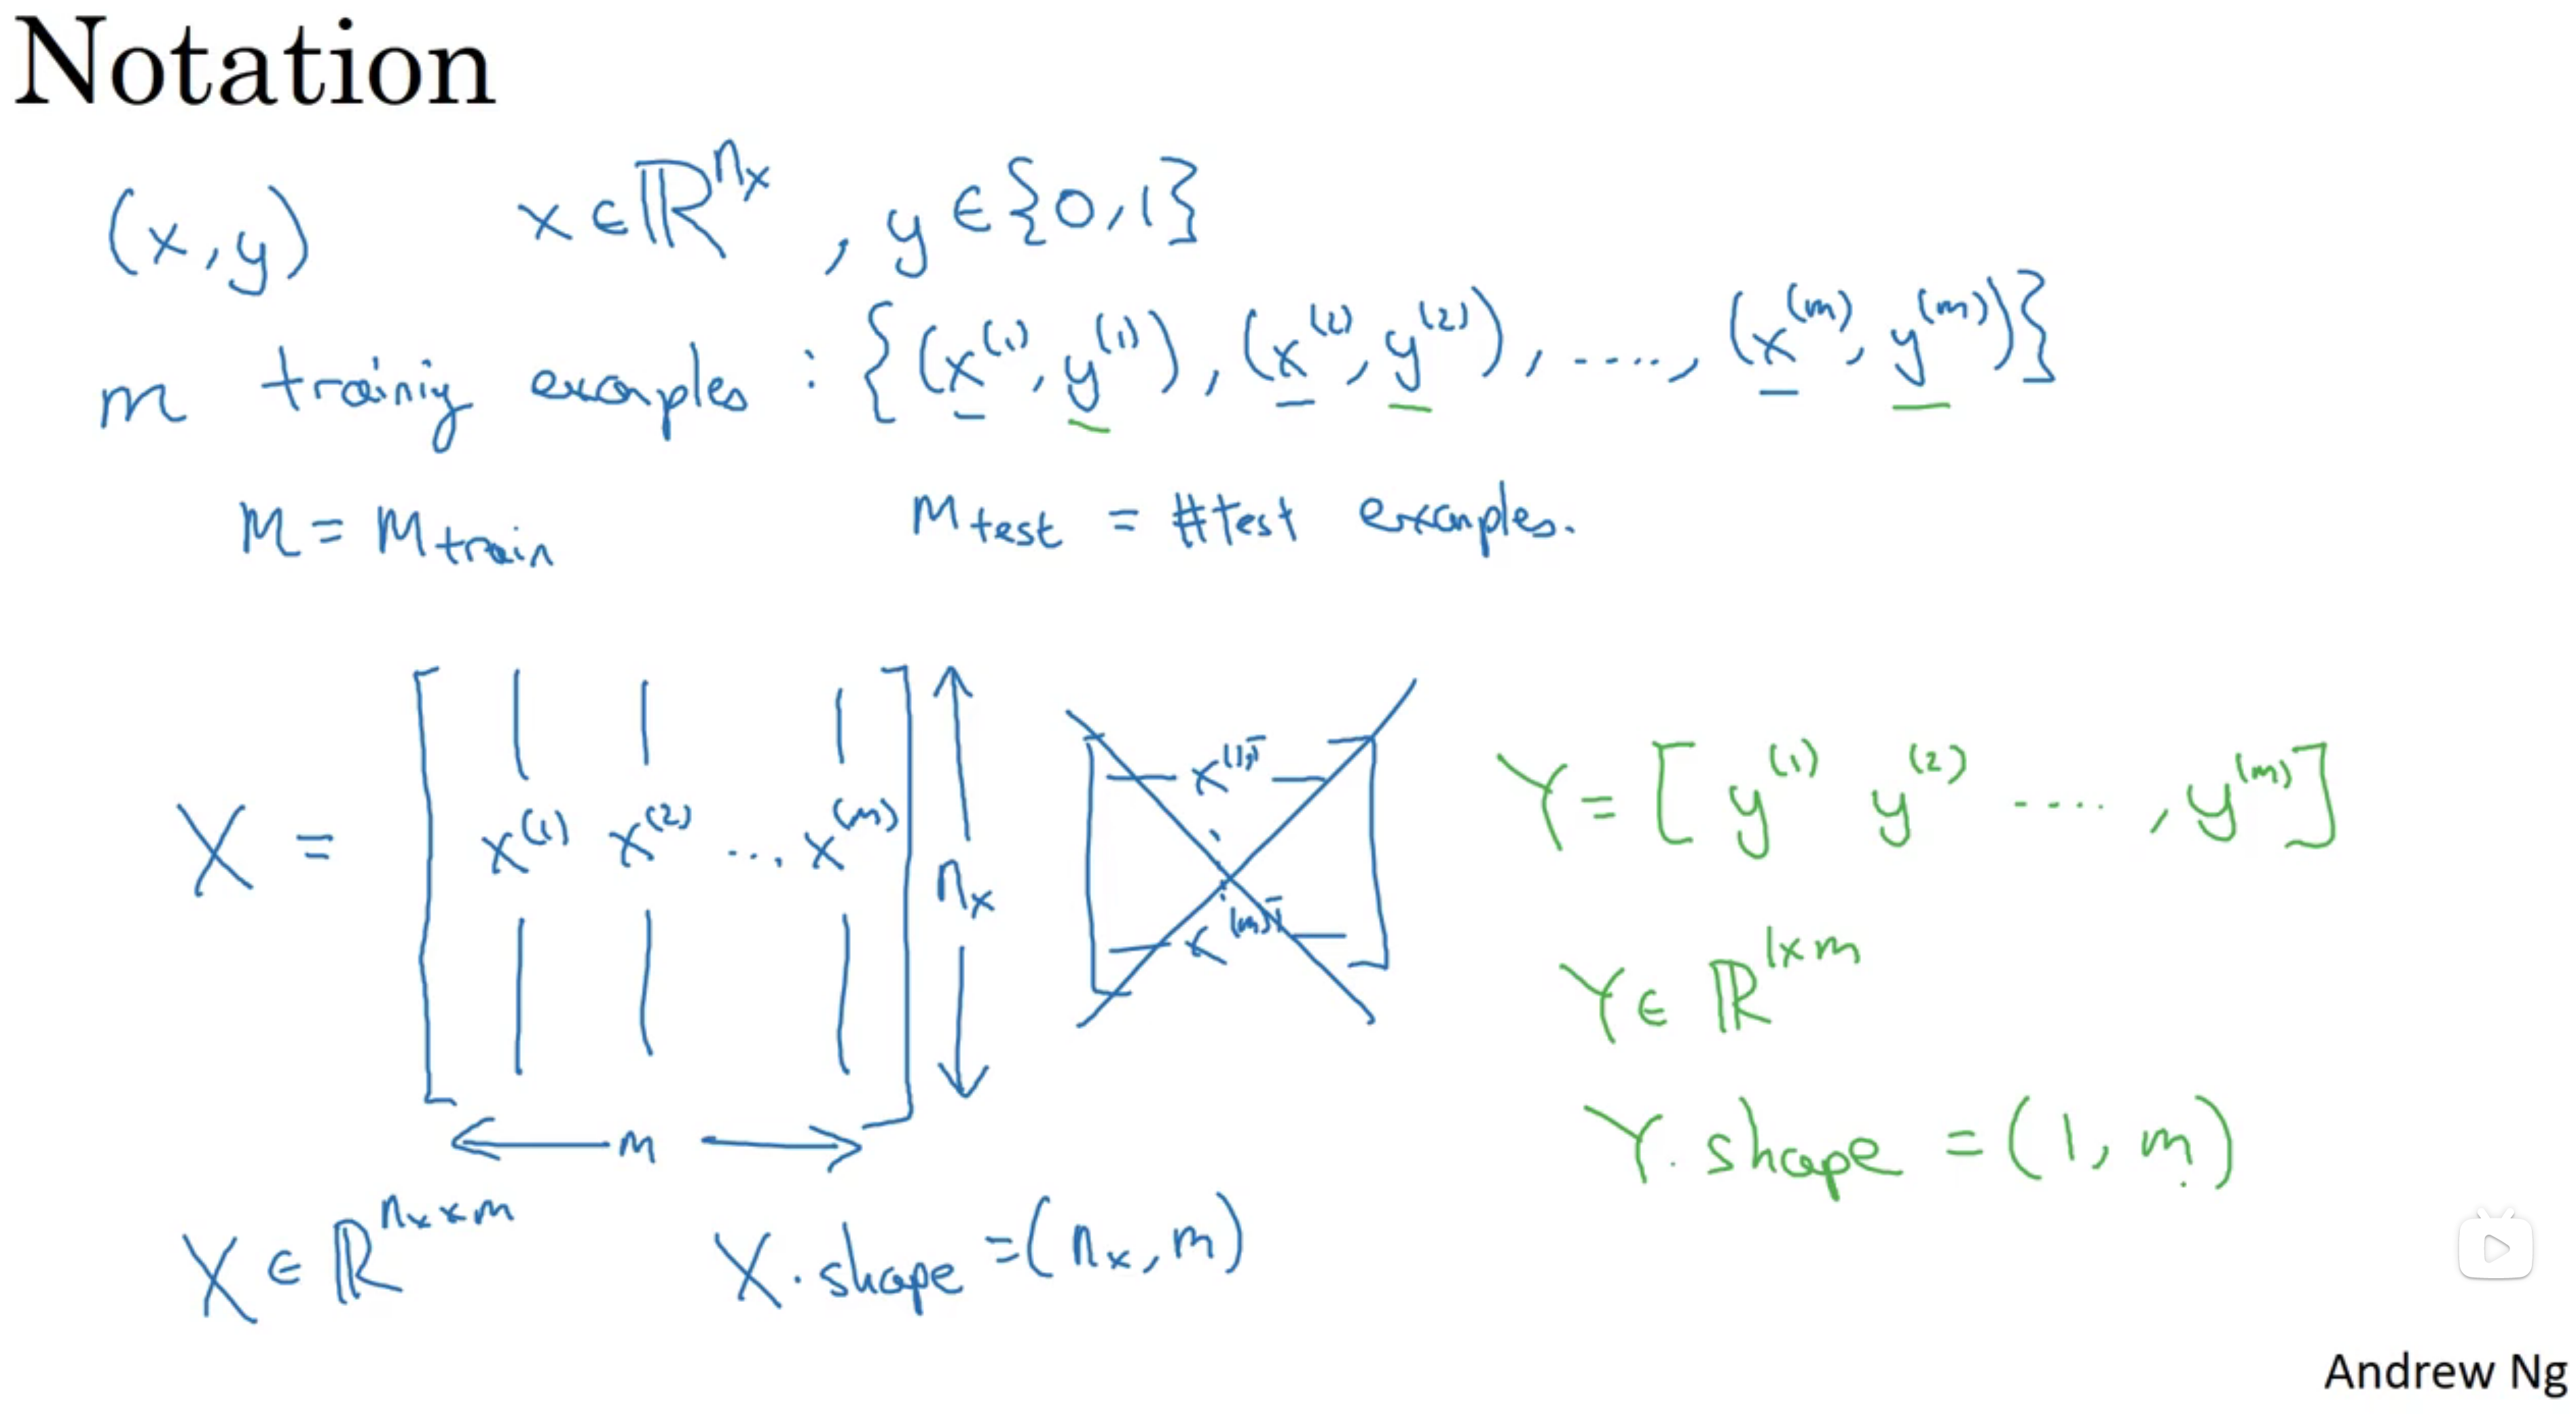 Notation
(x,y) x∈ℝ^{n_x}, y∈{0,1}
m training examples : {(x^{(1)}, y^{(1)}), (x^{(2)}, y^{(2)}), ....., (x^{(m)}, y^{(m)})}
M = M_{train} M_{test} = #test examples.
X = [x^{(1)} x^{(2)} ... x^{(m)}] n_x
m
x^{(1)T}
⋮
x^{(m)T}
Y = [y^{(1)} y^{(2)} ...., y^{(m)}]
Y ∈ ℝ^{1×m}
Y.shape = (1, m)
X ∈ ℝ^{n_x×m} X.shape = (n_x, m)
Andrew Ng